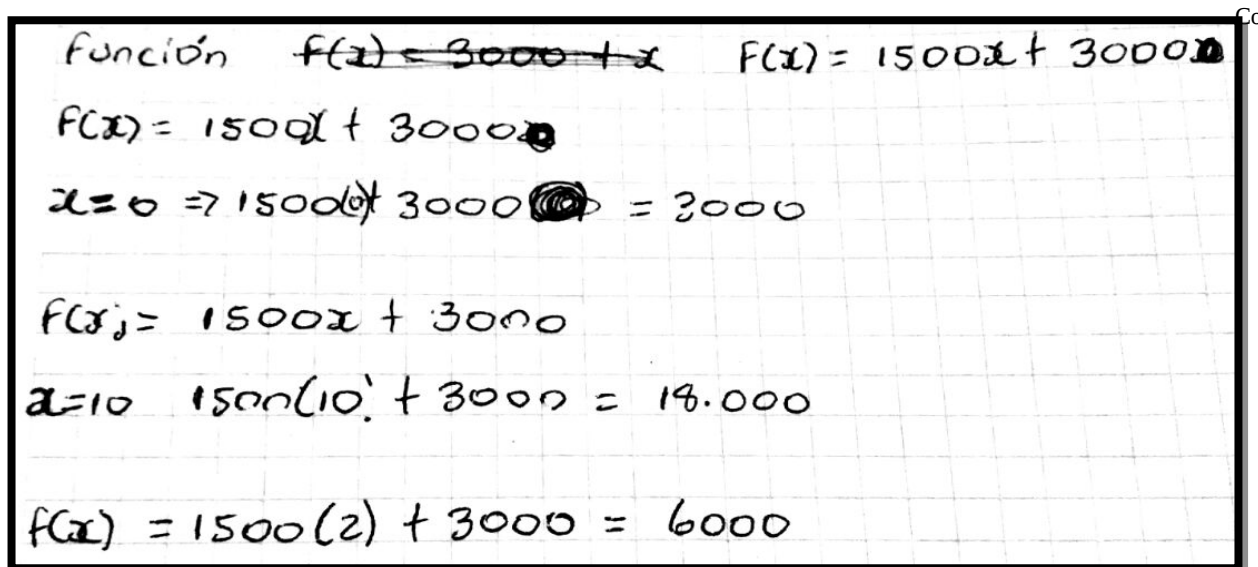 Co
Función f(x) = 3000 + x F(x) = 1500x + 3000
F(x) = 1500x + 3000
x=0 => 1500(0)+ 3000 = 3000
F(x) = 1500x + 3000
x=10 1500(10) + 3000 = 18.000
f(x) = 1500(2) + 3000 = 6000